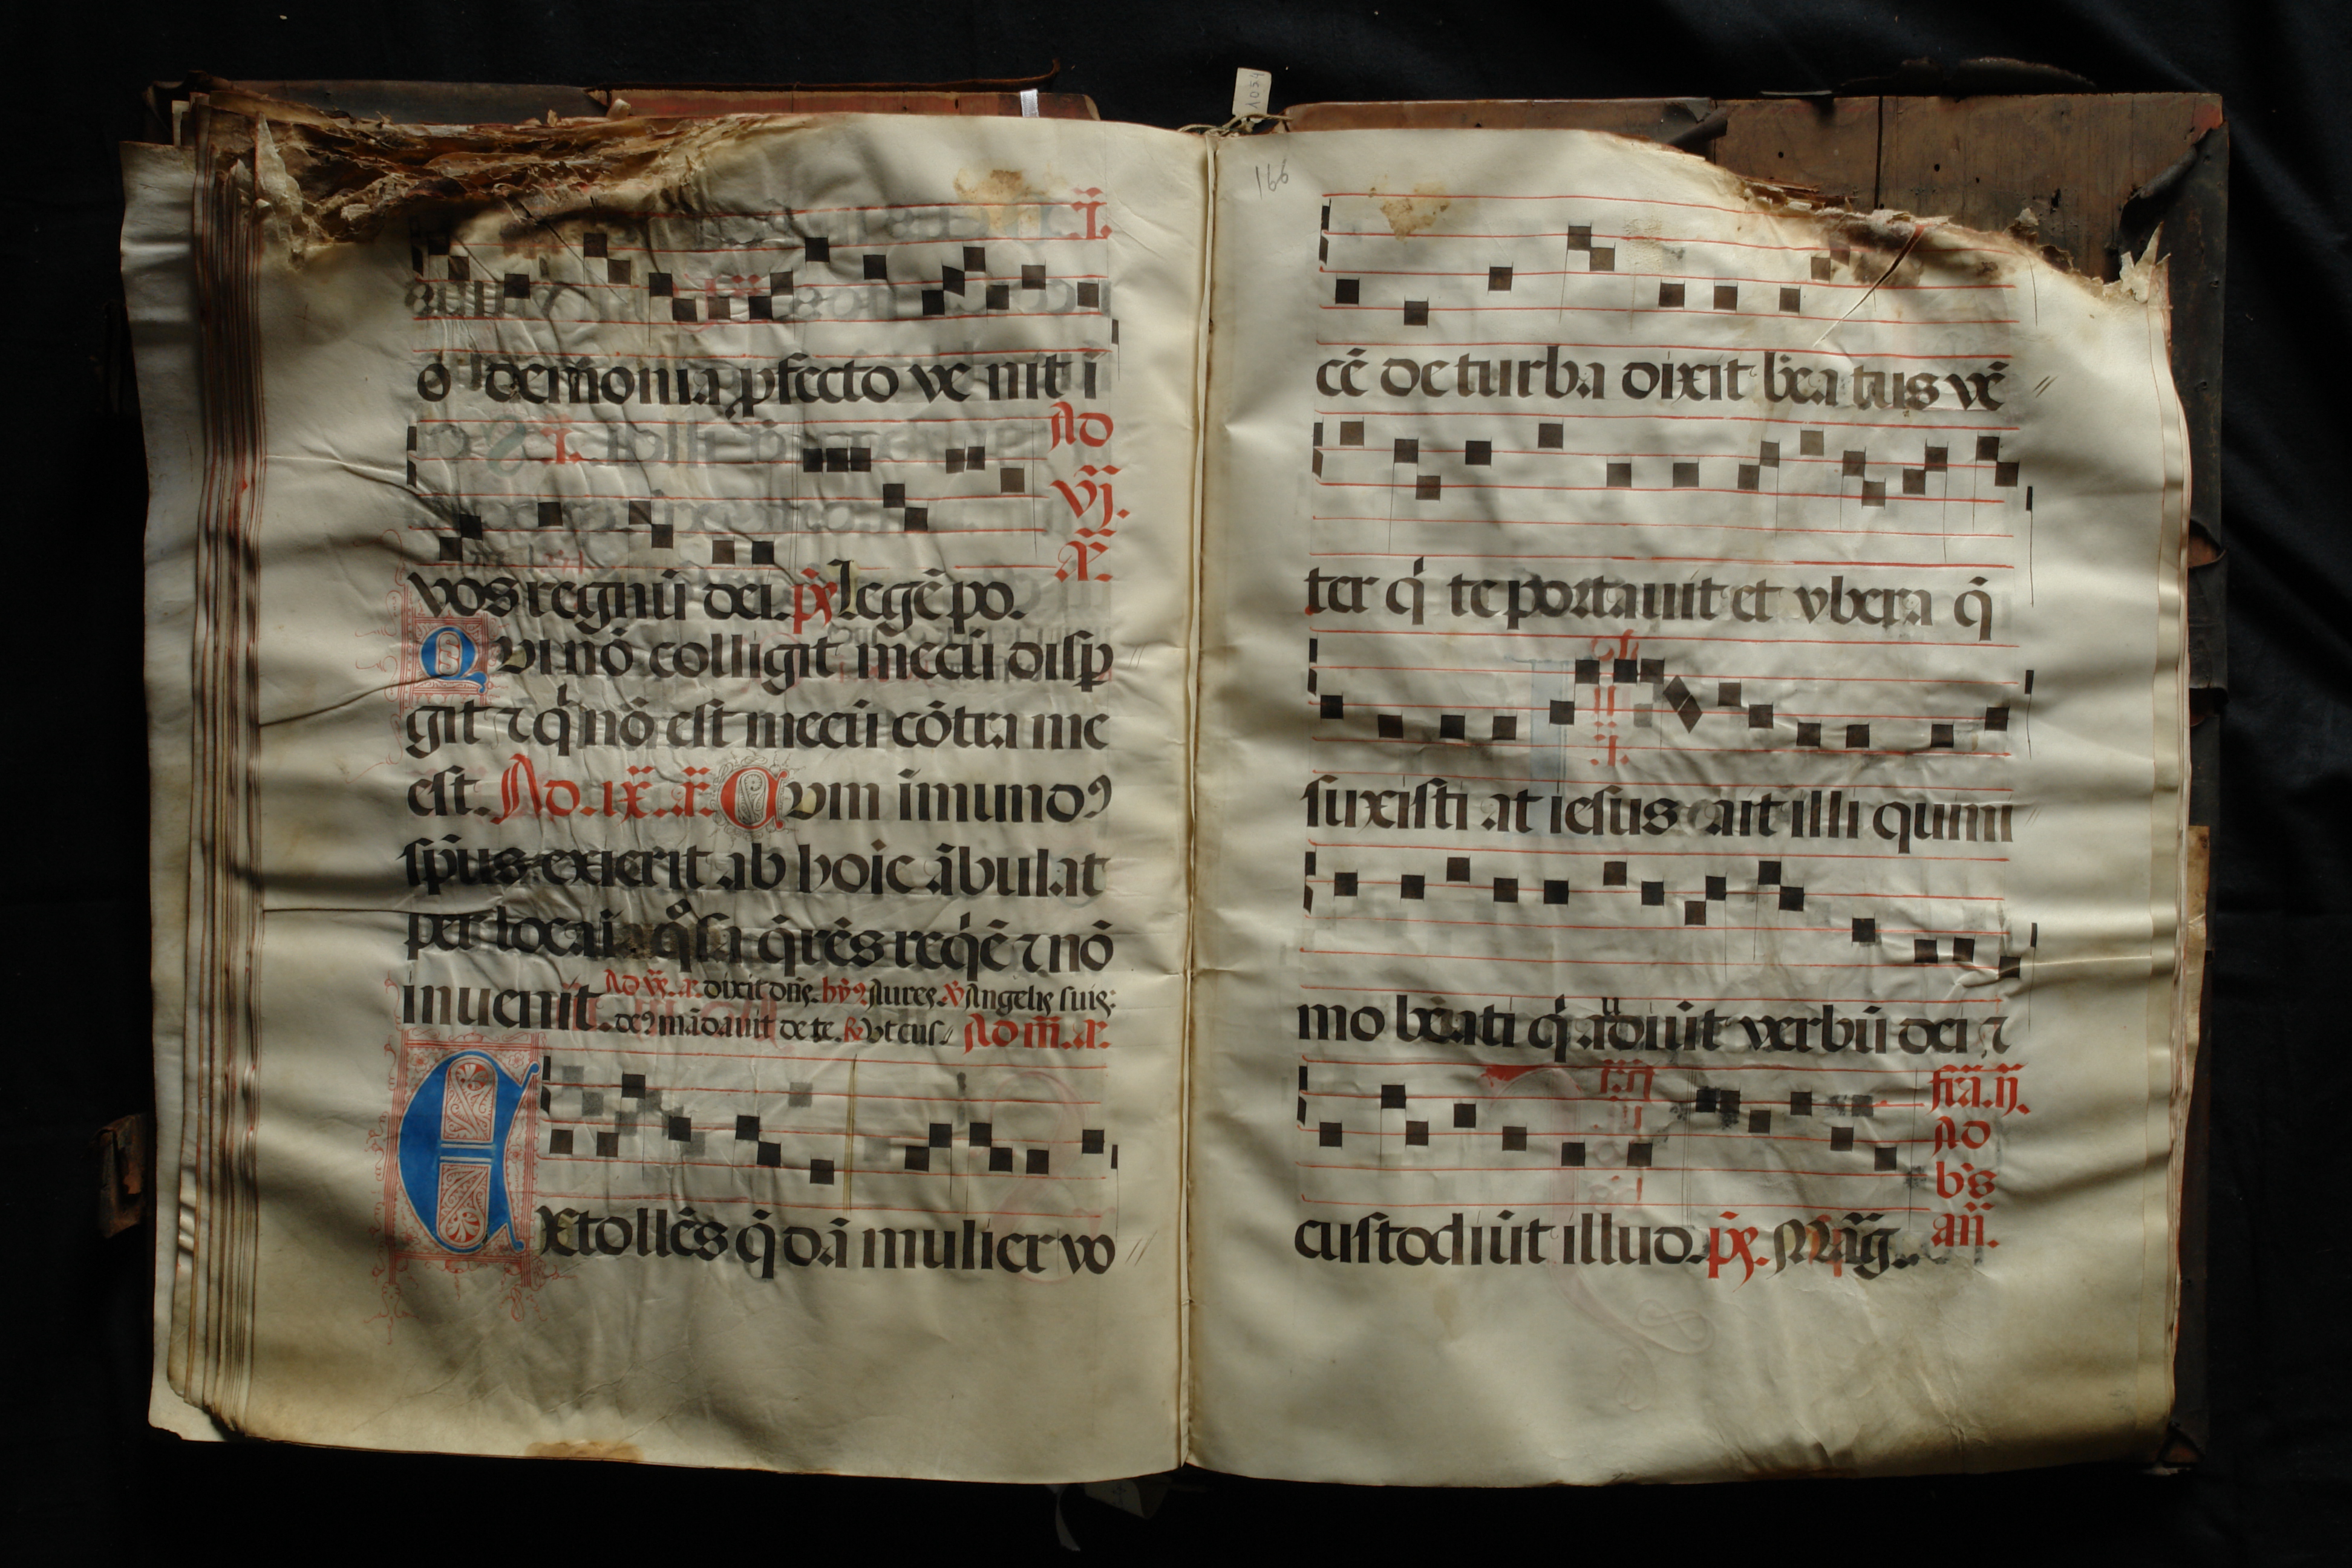 o demonia ꝓfecto ve nit ī
vos regnū dei. p̄s Legē po.
Ad
vj.
Qvi nō colligit mecū disp
git ⁊ qͥ nō est mecū cōtra me
est. Ad .ix. .r. Cvm īmundꝰ
sp̄us exierit ab hoīe ābulat
per loca īaqͦsa q̄rēs reqͥē ⁊ nō
inuenit. Ad vs̄. .r. dixit dn̄s. hȳꝰ Aures. v̄ Angelis suis:
deꝰ mādauit de te. R Vt cus Ad m̄. .r.
EXtollēs q̄dā mulier vo
1054
166
cē de turba dixit bēa tus vē
ter qͥ te portauit et vbera q̄
suxisti at iesus ait illi quini
mo bēati qͥ audiūt verbū dei ⁊
custodiūt illud. p̄s. Māg.
fr̄a. ij.
Ad
bs
an̄.